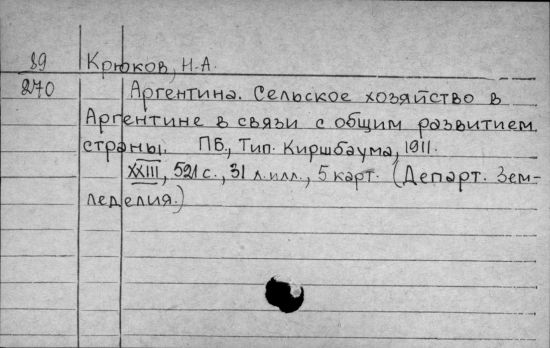 89 Крюков, Н.А.
270 Аргентина. Сельское хозяйство в
Аргентине в связи с общим развитием
страны. ПБ., Тип. Киршбаума, 1911.
XXIII, 521 с., 31 л.илл., 5 карт. (Департ. Зем-
леделия.)